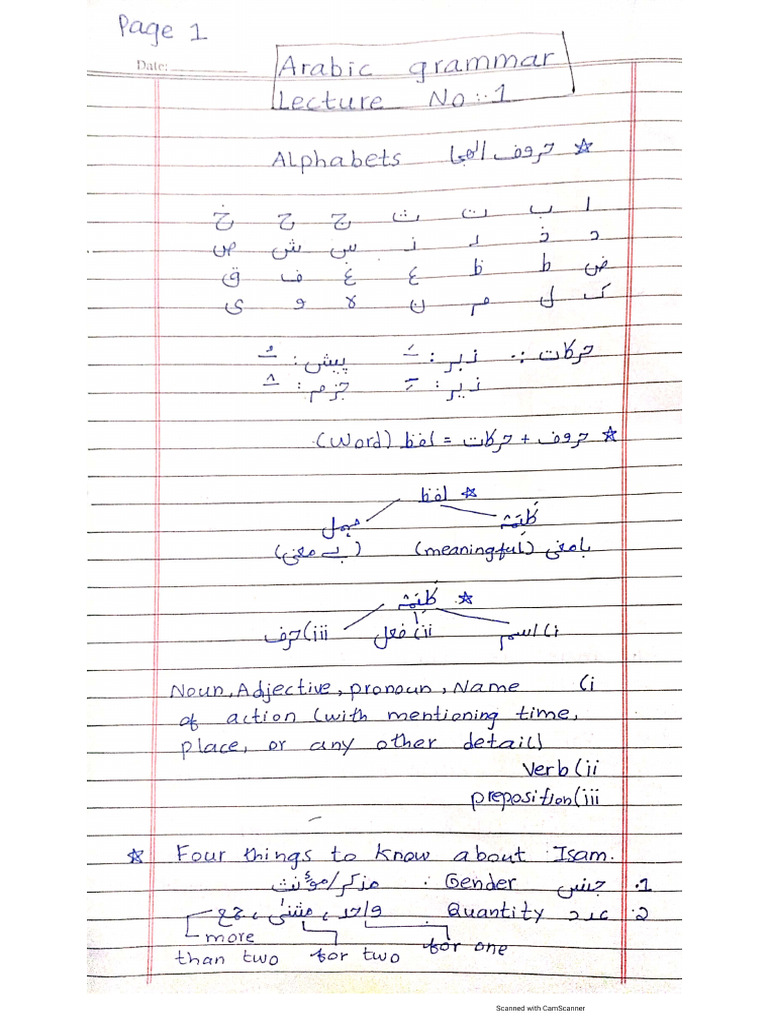 Page 1
Date:
Arabic grammar
Lecture No: 1
Alphabets حروف الهجا ☆
ا ب ت ث ج ح خ
د ذ ر ز س ش ص
ض ط ظ ع غ ف ق
ک ل م ن ہ و ی
حرکات :. زبر: ـَ پیش: ـُ
زیر: ـِ جزم: ـْ
☆ حروف + حرکات = لفظ (Word).
☆ لفظ
کَلِمَة مہمل
بامعنی (meaningful) (بے معنی)
☆. کَلِمَة
i) اسم ii) فعل iii) حرف
i) Noun, Adjective, pronoun, Name
of action (with mentioning time,
place, or any other detail)
ii) Verb
iii) preposition
☆ Four things to know about Isam.
1. جنس Gender : مذکر/مؤنث
2. عدد Quantity . واحد، مثنیٰ، جمع
more
than two for two for one
Scanned with CamScanner